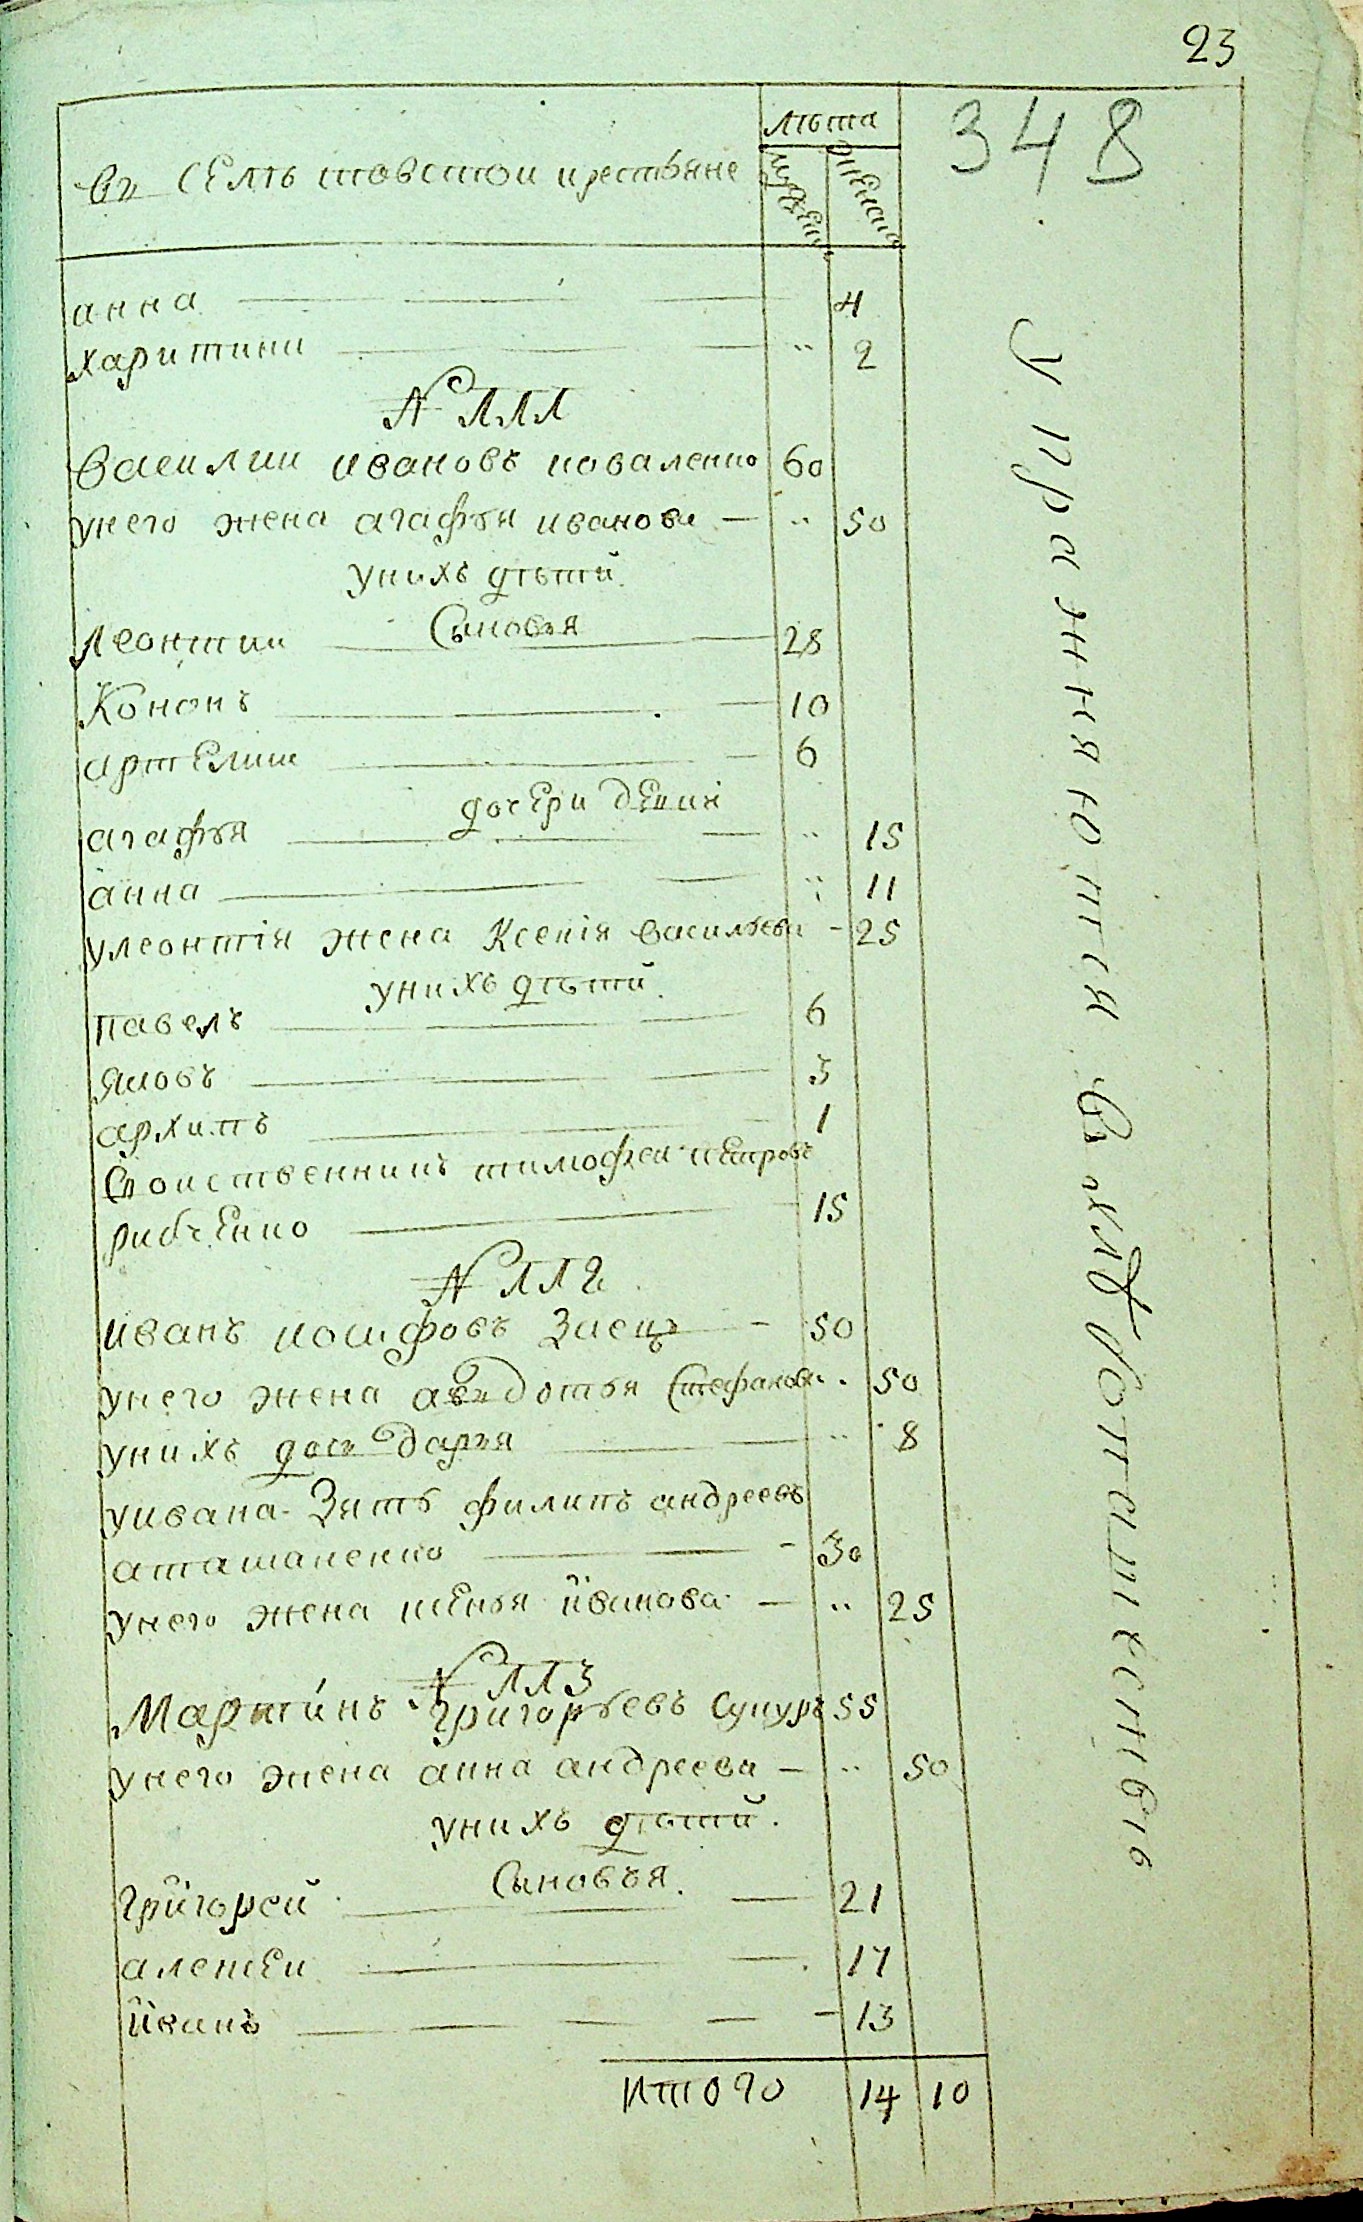 23
348
лѣта
въ селѣ товстом крестьяне
мужеска
женска
анна 4
харитини " 2
№ 111
Василии ивановъ коваленко 60
унего жена агафья иванова " 50
унихъ дѣтй
Сыновья
леонтии 28
Кононъ 10
артемии 6
дочери
агафья " 15
анна " 11
улеонтія жена Ксенія васильева 25
унихъ дѣтй
павелъ 6
яковъ 3
архипъ 1
Своиственникъ тимофеи петровъ
рибченко 15
№ 112
иванъ иосифовъ Заецъ 50
унего жена авъдотья Стефанова 50
унихъ дочь дарья " 8
уивана Зять филипъ андреевъ
аташаненко 30
унего жена ксенья ивинова " 25
№ 113
Мартинъ Григорьевъ Сукуръ 55
унего жена анна андреева " 50
унихъ дѣтй
Сыновья
Григорей 21
алексеи 17
иванъ 13
итого 14 10
упражняются вхлѣбопашествѣ